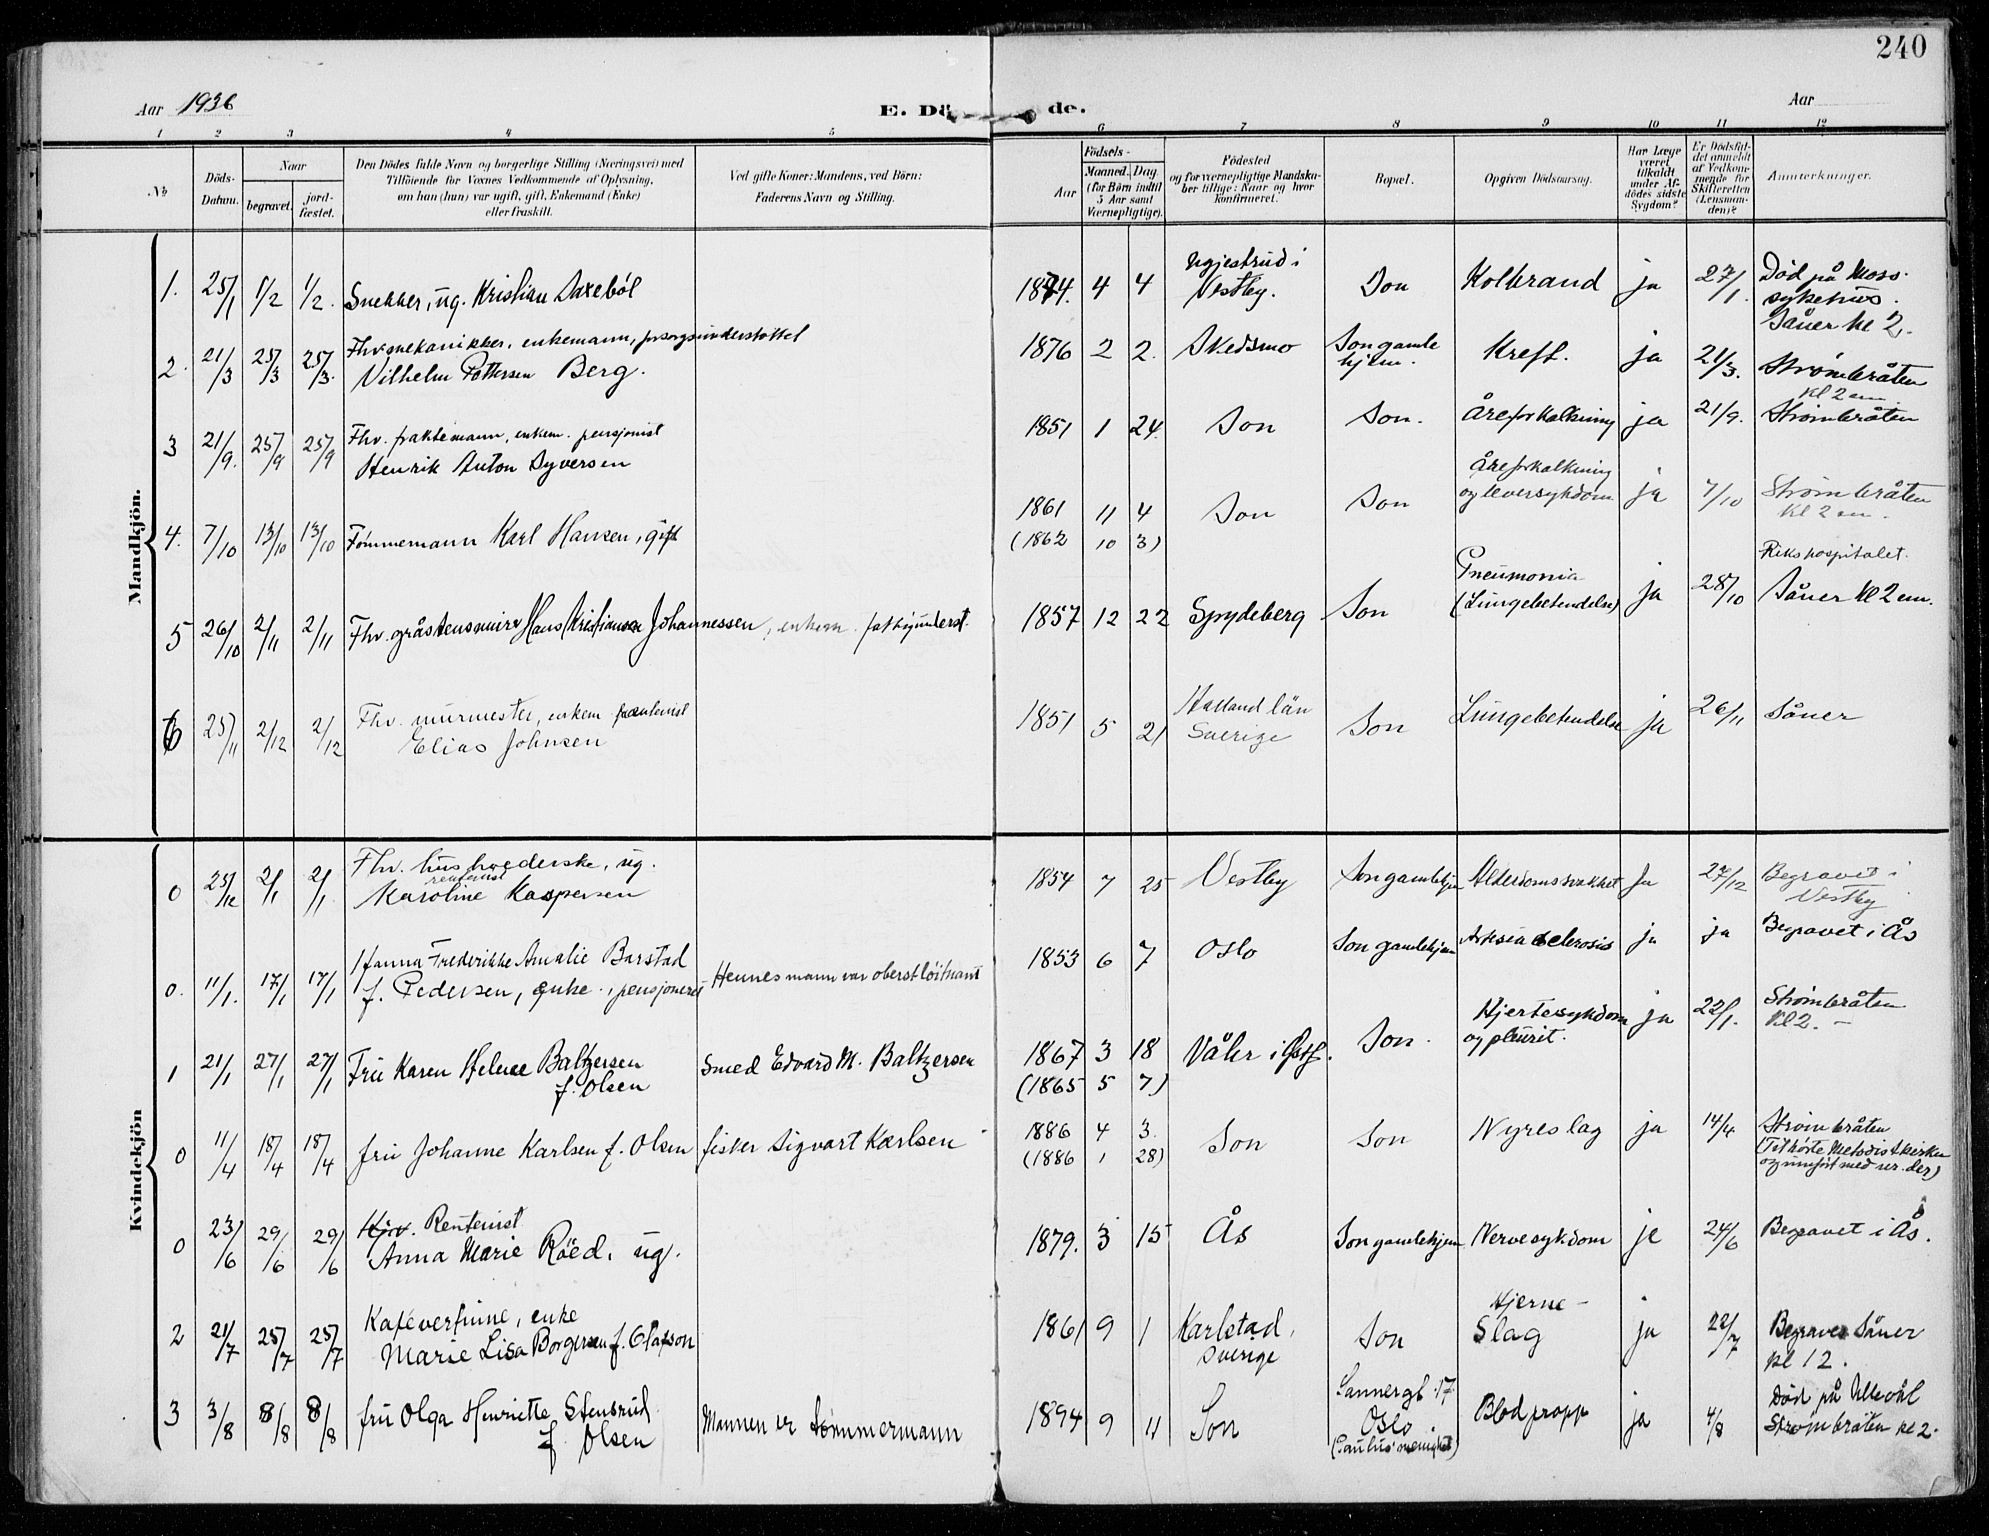 240
Aar 1936
E. Dö de.
Aar
1 2 3 4 5 6 7 8 9 10 11 12
№
Döds-Datum.
Naar
begravet.
jord-fæstet.
Den Dödes fulde Navn og borgerlige Stilling (Næringsvei) med
Tilföiende for Voxnes Vedkommende af Oplysning,
om han (hun) var ugift, gift, Enkemand (Enke)
eller fraskilt.
Ved gifte Koner: Mandens, ved Börn:
Faderens Navn og Stilling.
Födsels-
Aar
Maaned. Dag
(for Børn indtil
5 Aar samt
Værnepligtige).
Födested
og for værnepligtige Mandska-
ber tillige: Naar og hvor
konfirmeret.
Bopæl.
Opgiven Dödsaarsag.
Har Læge
været
tilkaldt
under Af-
dödes sidste
Sygdom?
Er Dödsfal-
det anmeldt
af Vedkom-
mende for
Skifteretten
(Lensman-
den)?
Anmerkninger.
Mandkjön.
1. 25/1 1/2 1/2. Snekker, ug. Kristian Saxebøl 1874. 4 4 i Vestby. Son Kolbrand ja 27/1. Død på Moss sykehus. Såner kl 2.
2. 21/3 25/3 25/3. Fhv mekanikker, enkemann, forsorgsunderstøttet
Vilhelm Pettersen Berg. 1876 2 2. Skedsmo Son gamle hjem. Kreft. ja 21/3. Strømbråten kl 2 em
3 21/9. 25/9 25/9 Fhv. fraktemann, enkem. pensjonist
Henrik Anton Syversen 1851 1 24. Son Son. Åreforkalkning ja 21/9. Strømbråten
4. 7/10 13/10 13/10 Tømmermann Karl Hansen, gift 1861 11 4 Son Son Åreforkalkning og leversykdom ja 7/10 Strømbråten kl 2 em.
(1862 10 3)
5 26/10 2/11 2/11 Fhv. gråstensmurer Hans Kristiansen Johannessen, enkem. 1857 12 22 Spydeberg Son Pneumonia (Lungebetendelse) ja 28/10 Rikshospitalet. Såner kl 2 em.
6 25/11 2/12 2/12 Fhv. murmester, enkem
Elias Johnsen 1851 5 21 Halland län Sverige Son Lungebetendelse ja 26/11 Såner
Kvindekjön
0 25/12 2/1 2/1 Fhv. husholderske, ug.
rentenist
Karoline Kaspersen 1854 7 25 Vestby Son gamlehjem Alderdomssvakhet ja 27/12 Begravet i Vestby
0. 11/1. 17/1 17/1 Hanna Frederikke Amalie Barstad
f. Pedersen, enke, pensjonert Hennes mann var oberstløitnant 1853 6 7 Oslo Son gamlehjem ja ja Begravet i Ås
1 21/1 27/1 27/1 Fru Karen Helene Baltzersen
f. Olsen Smed Edvard M. Baltzersen 1867 3 18 Våler i Østf. Son. Hjertesykdom og pleurit. ja 22/1. Strømbråten kl 2. —
(1865 5 7)
0 11/4 18/4 18/4 fru Johanne Karlsen f. Olsen fisker Sigvart Karlsen 1886 4 3. Son Son Nyreslag ja 14/4 Strømbråten
(1886 1 28) (Tilhørte Metodistkirken og innført med nr. der)
0 23/6 29/6 29/6 Rentenist
Anna Marie Røed, ug. 1879. 3 15 Ås Son gamlehjem Nervesykdom ja 24/6 Begravet i Ås.
2 21/7 25/7 25/7 Kafévertinne, enke
Marie Lisa Borgersen f. Olafson 1861 9 1 Karlstad, Sverige Son Hjerne-Slag ja 22/7 Begraves Såner kl 12.
3 3/8 8/8 8/8 fru Olga Henriette Stensrud
f. Olsen Mannen er tømmermann 1894 9 11 Son Sannergt 17 Oslo (Paulus menighet) Blodpropp ja 4/8 Død på Ullevål Strømbråten kl 2.